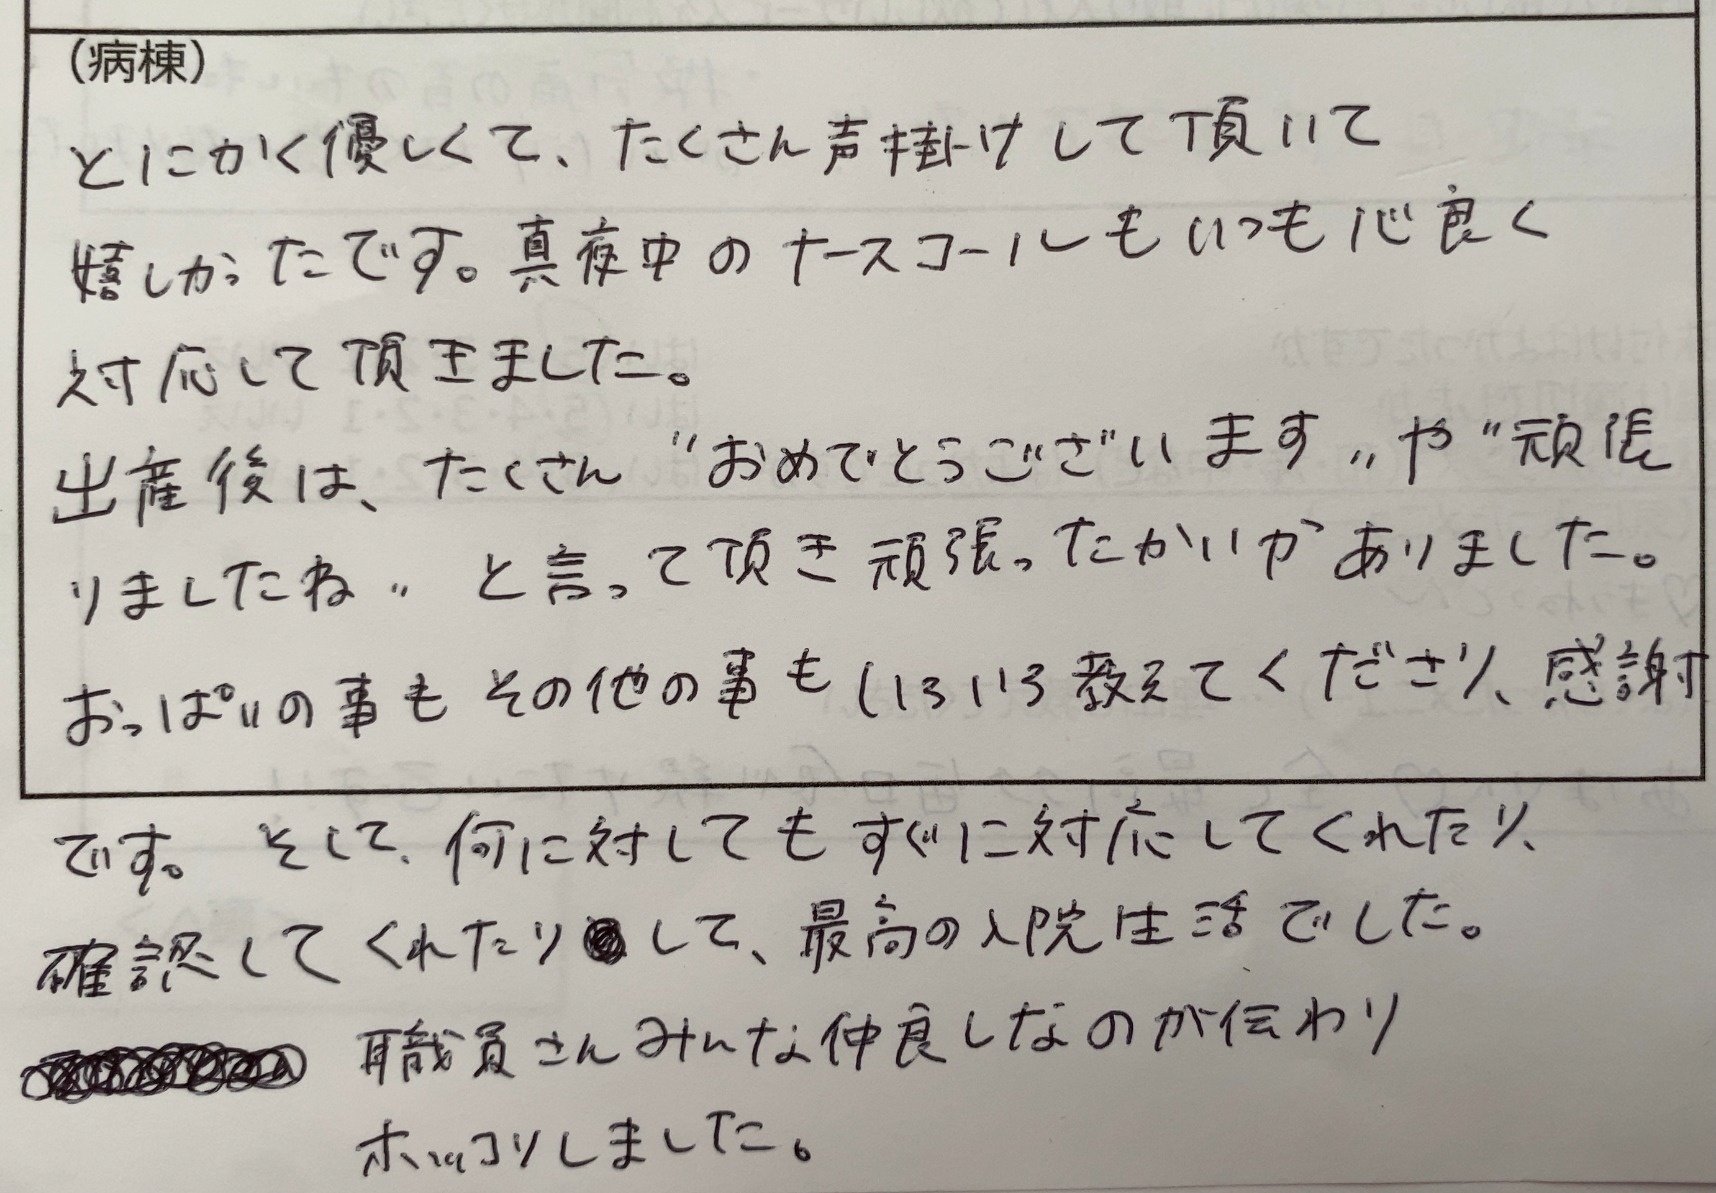 （病棟）
とにかく優しくて、たくさん声掛けして頂いて
嬉しかったです。真夜中のナースコールもいつも心良く
対応して頂きました。
出産後は、たくさん〝おめでとうございます〟や〝頑張
りましたね〟と言って頂き頑張ったかいがありました。
おっぱいの事もその他の事もいろいろ教えてくださり、感謝
です。そして、何に対してもすぐに対応してくれたり、
確認してくれたりして、最高の入院生活でした。
職員さんみんな仲良しなのが伝わり
ホッコリしました。